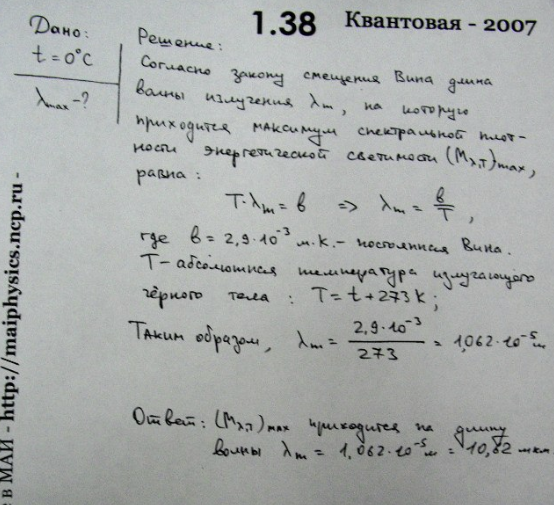 1.38 Квантовая - 2007
Дано:
t = 0°C
λmax - ?
Решение:
Согласно закону смещения Вина длина
волны излучения λm, на которую
приходится максимум спектральной плот-
ности энергетической светимости (Mλ,T)max,
равна:
T·λm = b => λm = b/T,
где b = 2,9·10⁻³ м.К. - постоянная Вина.
T - абсолютная температура излучающего
чёрного тела : T = t + 273 K;
Таким образом, λm = 2,9·10⁻³/273 = 1,062·10⁻⁵ м
Ответ: (Mλ,T)max приходится на длину
волны λm = 1,062·10⁻⁵ м = 10,62 мкм
в МАИ - http://maiphysics.ncp.ru -